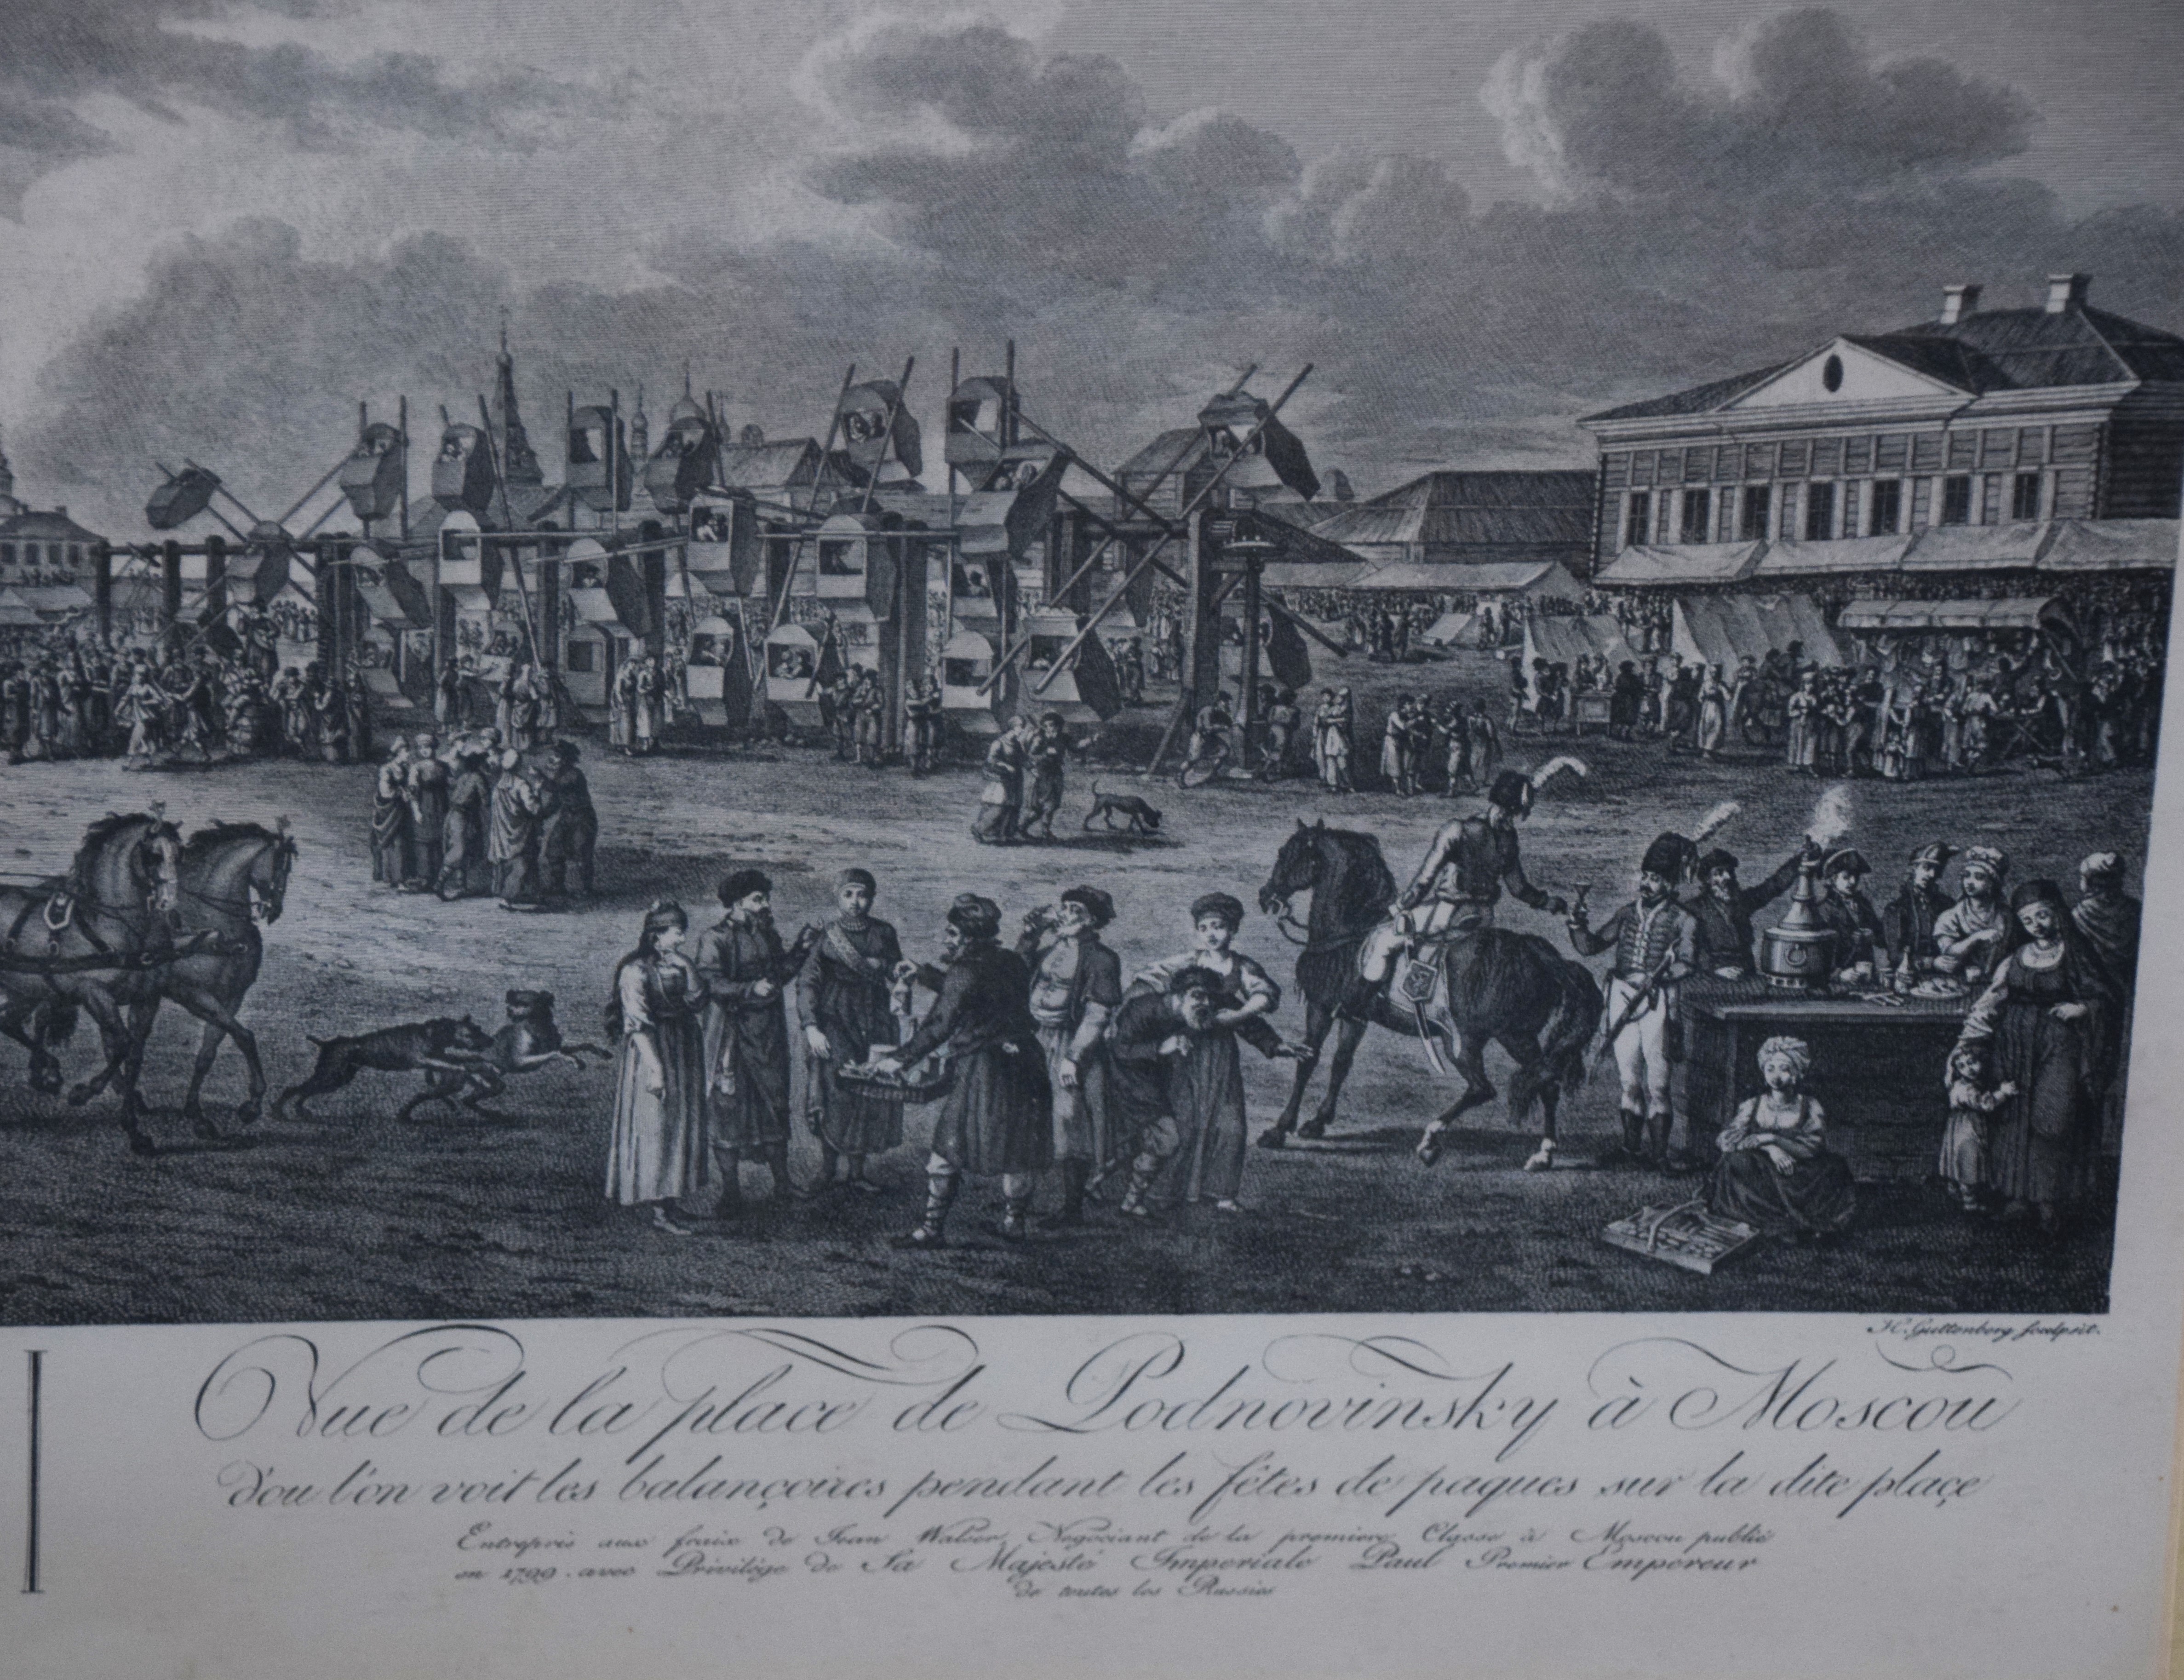 H. Guttenberg sculpsit.
Vue de la place de Podnovinsky à Moscou
d'ou l'on voit les balançoires pendant les fêtes de paques sur la dite plaçe
Entrepris aux fraix de Jean Walser, Negociant de la premiere Classe à Moscou publié
en 1799. avec Privilége de Sa Majesté Imperiale Paul Premier Empereur
de toutes les Russies